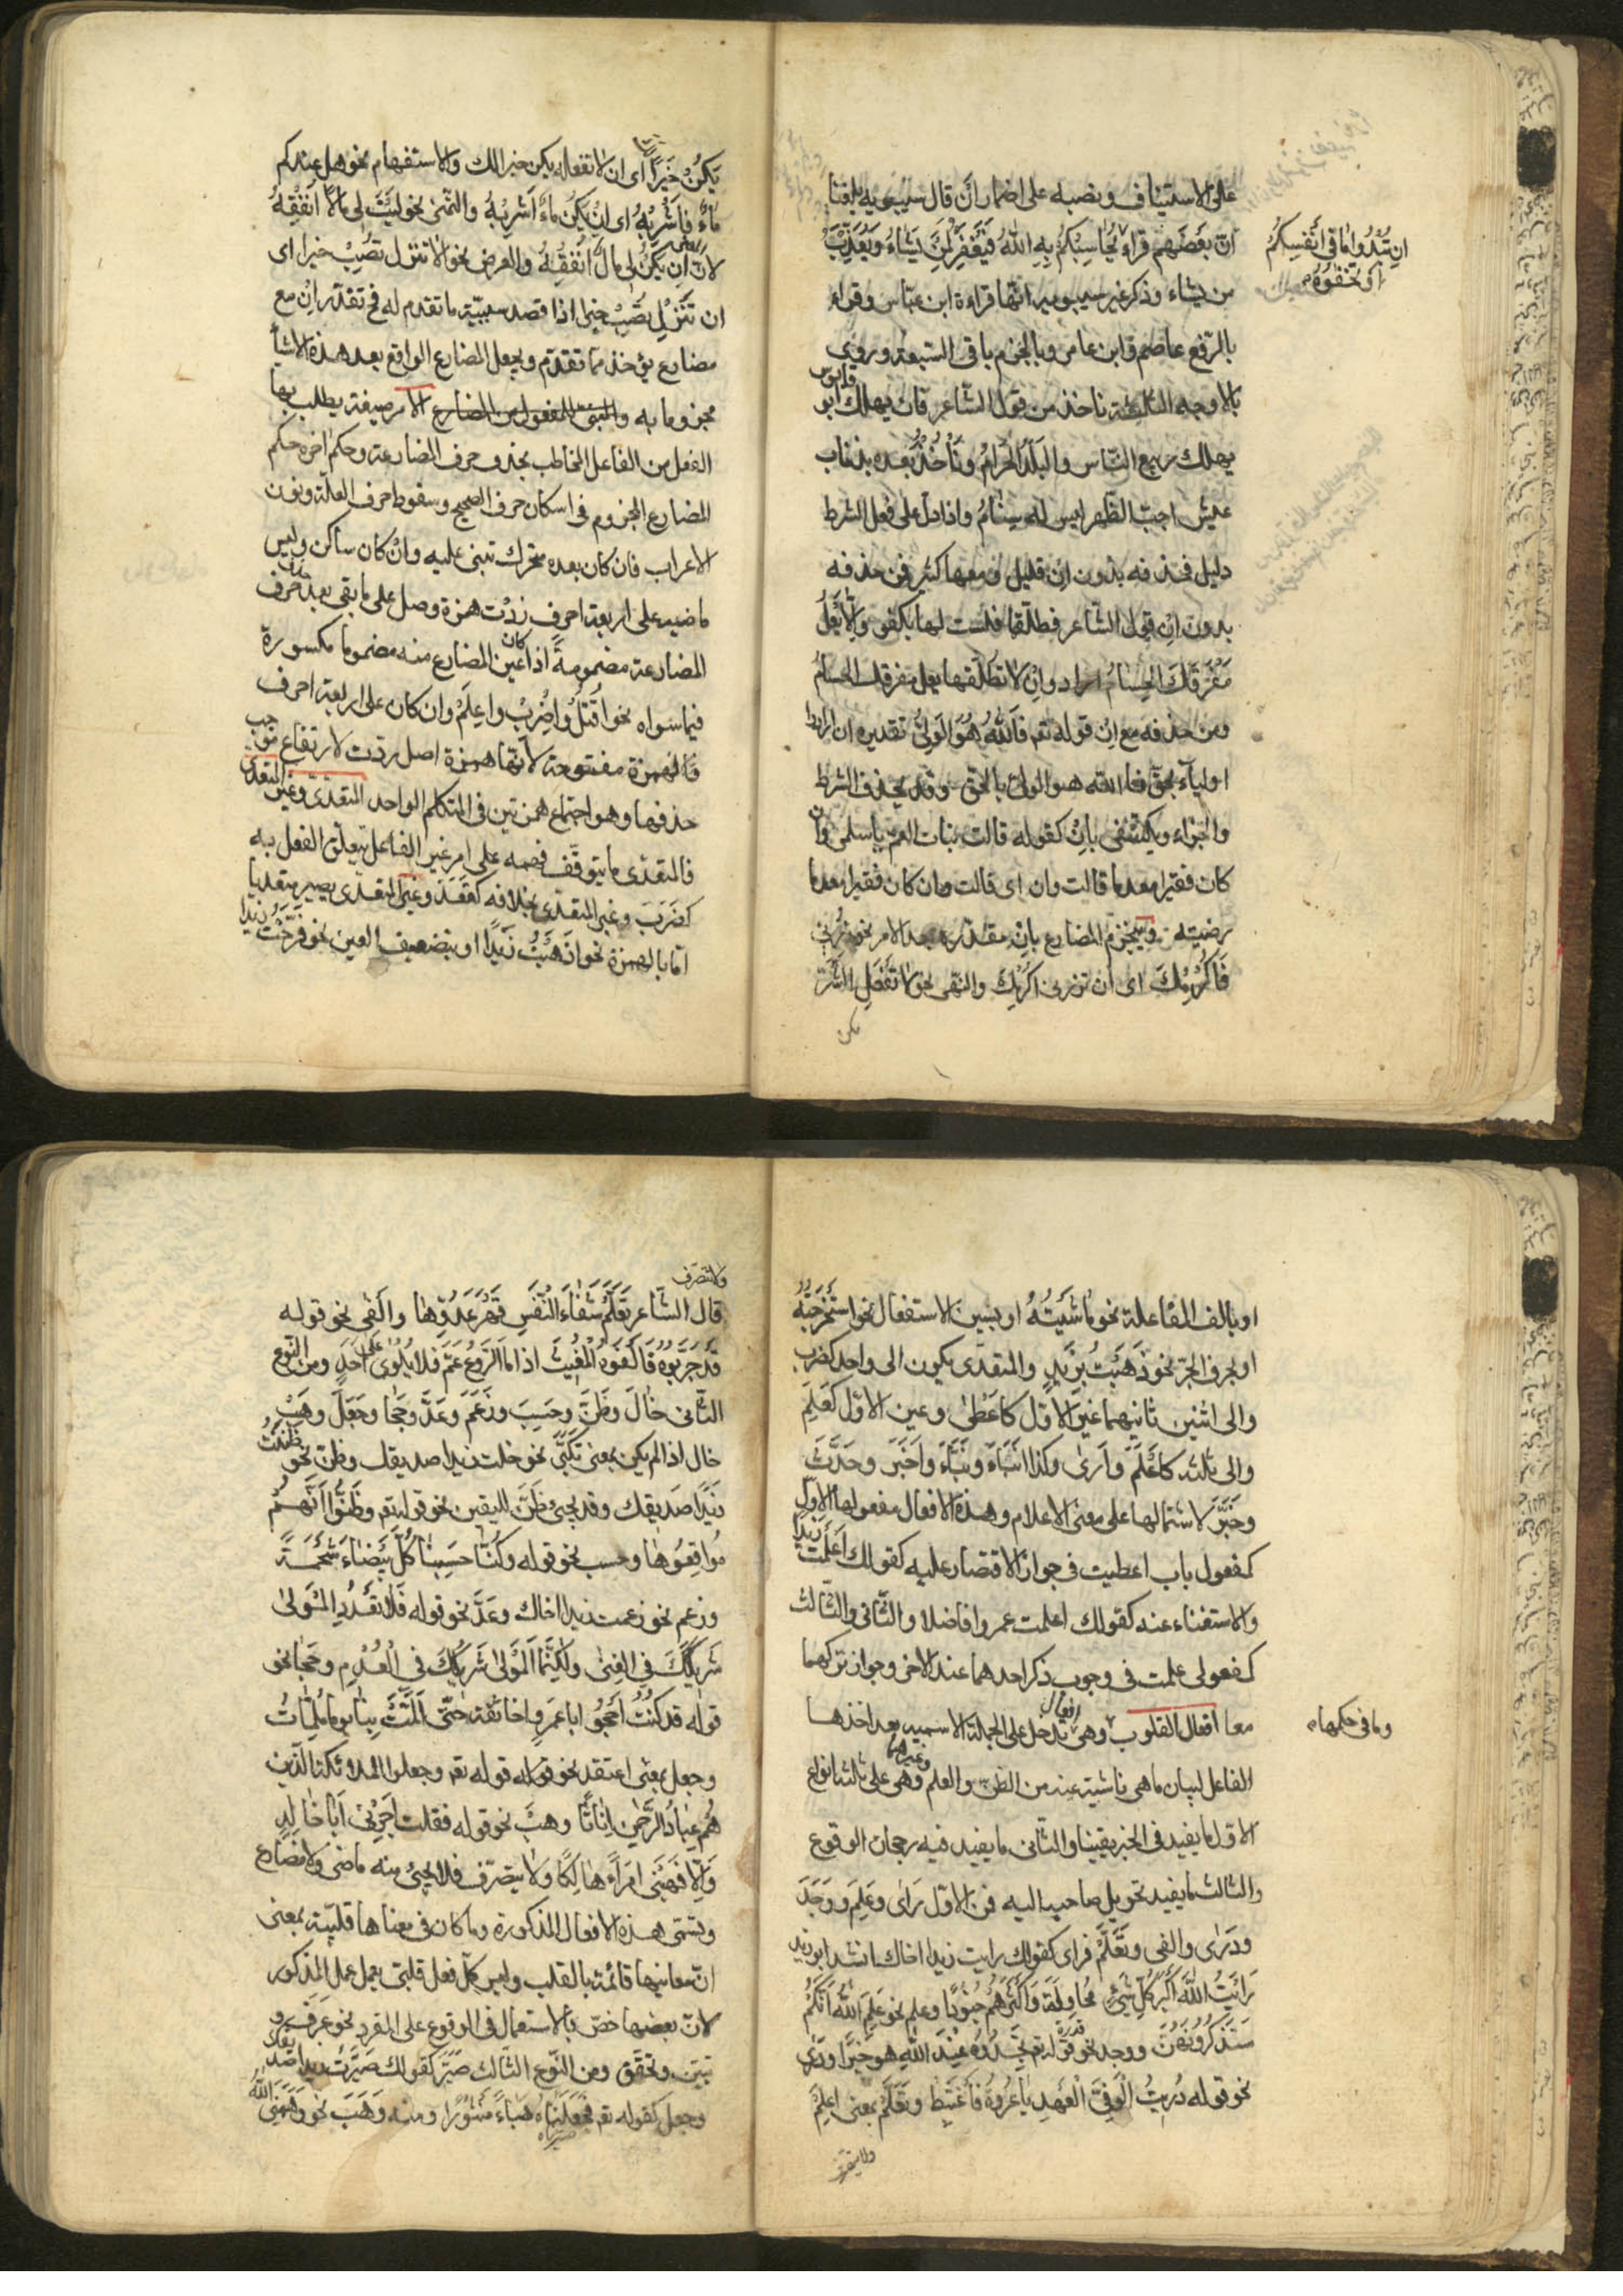 على الاستيناف وبنصبه على اضمار ان قال سيبويه بلغنا
ان بعضهم قراء يُحَاسِبْكُمْ بِهِ اللهُ فَيَغْفِرَ لِمَنْ يَشَاءُ وَيُعَذِّبَ
ان تُبْدُوا مَا في اَنْفُسِكُمْ
اَو تُخْفُوهُ
من يشاء وذكر غير سيبويه انها قراءة ابن عباس وقراء
بالرّفع عاصم وابن عامر وبالجزم باقى السّبعة وروى
بالاوجه الثلثة ناخذ من قول الشّاعر فان يهلك ابو قابوس
يهلك ربيع النّاس والبَلَدُ الحَرَامُ ونَأْخُذُ بعده بذناب
عيش اجبّ الظّهر ليس له سِنَامُ واذا دلّ على فعل الشرط
دليل فحذفه بدون اِنْ قليل ومعها كثير فمن حذفه
بدون اِنْ قول الشّاعر فطلّقها فلست لها بكفو وَاِلّا يَعْلُ
مَفْرَقَكَ الحِسَامُ اراد وانْ لا تطلّقها يعل مفرقك الحسام
ومن حذفه مع اِنْ قوله تعم فَاللهُ هُوَ الوَلِىُّ تقديره ان ارادوا
اولياء بحقّ فالله هو الولىّ بالحقّ وقد يحذف الشرط
والجزاء ويكتفى بانْ كقوله قالت بنات العمّ يا سلمى وان
كان فقيرا معدما قالت وان اى قالت وان كان فقيرا معدما
رضيته وينجزم المضارع بانْ مقدّرة بعد الامر نحو زرنى
فَاُكْرِمْكَ اى ان تزرنى اكرمْكَ والنّهى نحو لا تَفْعَلِ الشَّرَّ
يكن
يَكُنْ خَيْرًا اى ان لا تفعله يكن خيرا لك والاستفهام نحو هل عندكم
مَاءٌ فاَشْرَبْهُ اى اِنْ يَكُنْ مَاءٌ اَشْرَبْهُ والتمنى نحو ليْتَ لى مالًا اُنْفِقْهُ
لان المعنى اِنْ يَكُنْ لى مالٌ اُنْفِقْهُ والعرض نحو الا تنزل تُصِبْ خيرا اى
ان تَنْزِلْ تُصِبْ خيرا اذا قصد سببيّة ما تقدم له فح تقدّر اِنْ مع
مضارع يؤخذ مما تقدّم ويجعل المضارع الواقع بعد هذه الاشياء
مجزوما به والمبنى للمفعول من المضارع الامر صيغة يطلب بها
الفعل من الفاعل المخاطب بحذف حرف المضارعة وحكم اخره حكم
المضارع المجزوم فى اسكان حرف الصحيح وسقوط حرف العلّة ونون
الاعراب فان كان بعده متحرك تبنى عليه وانْ كان ساكن وليس
ماضيه على اربعة احرف زدْت همزة وصل على ما بقى بعد حذف حرف
المضارعة مضمومةً اذا كان عين المضارع منه مضموما مكسورة
فيما سواه نحو اُقْتُلْ واِضْرِبْ واِعْلَمْ وان كان على اربعة احرف
فالهمزة مفتوحة لانّها همزة اصل ردّت لارتفاع موجب
حذفها وهو اجتماع همزتين فى المتكلم الواحد المتعدّى وغير المتعدى
فالمتعدّى ما يتوقّف فهمه على امر غير الفاعل يتعلّق الفعل به
كضَرَبَ وغير المتعدّى بخلافه كقعَدَ وغير المتعدّى يصير متعديا
امّا بالهمزة نحو اذْهَبْتُ زَيْدًا او بتضعيف العين نحو فرّحْتُ زيدا
او بالف المفاعلة نحو ماشَيْتُهُ او بسين الاستفعال نحو اسْتَخْرَجْتُهُ
او بحرف الجرّ نحو ذَهَبْتُ بِزَيْدٍ والمتعدّى يكون الى واحد كضرب
والى اثنين ثانيهما غير الاوّل كاَعْطىٰ وعين الاوّل كعَلِمَ
والى ثلثة كاَعْلَمَ واَرىٰ وكذا اَنْبَاءَ ونَبَّاءَ واَخْبَرَ وحَدَّثَ
وخَبَّرَ لاشتمالها على معنى الاعلام وهذه الافعال مفعولها الاوّل
كمفعول باب اعطيت فى جواز الاقتصار عليه كقولك اَعْلَمْتُ زيدا
والاستغناء عنه كقولك اعلمت عمروا فاضلا والثّانى والثّالث
كمفعولى علمت فى وجوب ذكر احدهما عند الاخر وجواز تركهما
معا افعال القلوب وهى افعال تدخل على الجملة الاسميه بعد اخذها
وما فى حكمها
الفاعل لبيان ما هى ناشية عنه من الظنّ والعلم وغيرهما وهى على ثلثة انواع
الاوّل ما يفيد فى الخبر يقينا والثّانى ما يفيد فيه رجحان الوقوع
والثالث ما يفيد تحويل صاحبه اليه فمن الاوّل رَاىٰ وعَلِمَ ووَجَدَ
ودَرىٰ والفى وتَعَلَّمْ فراى كقولك رايت زيدا اخاك انشد ابو زيد
رَاَيْتُ اللهَ اَكْبَرَ كُلِّ شَىْءٍ مُحَاولَةً وَاَكْثَرَهُمْ جُنُودًا وعلم نحو عَلِمَ اللهُ اَنَّكُمْ
سَتَذْكُرُونَهُنَّ ووجد نحو قوله تعم تَجِدُوهُ عِنْدَ اللهِ هو خَيْرًا ودَرىٰ
نحو قوله دُرِيتُ الْوَفِىَّ الْعَهْدِ يا عُرْوَةُ فَاغْتَبِطْ وتَعَلَّمْ بمعنى اِعْلَمْ
ولا يتصرّف
ولا تتصرّف
قال الشّاعر تَعَلَّمْ شَفَاءَ النَّفْسِ قَهْرَ عَدُوِّهَا والفى نحو قوله
قَدْ جَرَّبُوهُ فَاَلْفَوْهُ الْمُغِيثَ اذا ما الرَّوْعُ عَمَّ فلا يُلْوىٰ على اَحَدٍ ومن النّوع
الثّانى خَالَ وظَنَّ وحَسِبَ وزَعَمَ وعَدَّ وحَجَا وجَعَلَ وهَبْ
خال اذا لم يكن بمعنى تَكَبَّر نحو خلت زيدا صديقك وظنّ نحو ظننتُ
زيدًا صديقك وقد يجئ ظَنَّ لليقين نحو قوله تعم وظَنُّوا اَنَّهُمْ
مُوَاقِعُوهَا وحسب نحو قوله وكُنّا حَسِبْنَا كُلَّ بَيْضَاءَ شَحْمَةً
وزعم نحو زعمت زيدا اخاك وعَدَّ نحو قوله فَلا تَعْدُدِ الْمَوْلىٰ
شَرِيكَكَ فِى الغِنىٰ ولٰكِنَّمَا الْمَوْلىٰ شَرِيكُكَ فى الْعُدْمِ وحَجَا نحو
قوله قد كُنْتُ اَحْجُو ابا عَمْرٍو اخا ثقة حتّى اَلَمَّتْ بِنَا يوما مُلِمّاتُ
وجعل بمعنى اعتقد نحو قوله تعم وجعلوا الملائكة الّذين
هُمْ عِبَادُ الرَّحْمٰنِ اِنَاثًا وهَبْ نحو قوله فقلت اَجِرْنى اَبَا خَالِدٍ
وَاِلّا فَهَبْنِى امْرَاءً هَالِكًا ولا يتصرّف فلا يجئ منه ماضى ولا مضارع
وتسمّى هذه الافعال المذكورة وما كان فى معناها قلبيّة بمعنى
انّ معانيها قائمة بالقلب وليس كلّ فعل قلبىّ يعمل عمل المذكور
لانّ بعضها خصّ بالاستعمال فى الوقوع على المفرد نحو عَرَفَ و
تبيّن وتحقّق ومن النّوع الثّالث صَيَّرَ كقولك صَيَّرْتُ زيدا صديقك
وجعل كقوله تعم فَجَعَلْنَاهُ هَبَاءً مَنْثُورًا ومنه وَهَبَ نحو وَهَبَنِى اللهُ